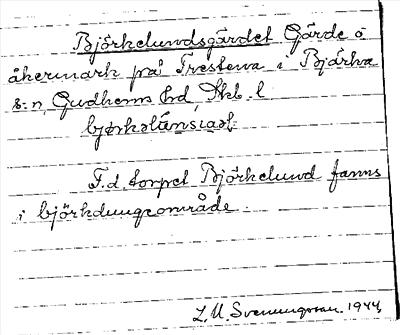 Björkelundsgärdet Gärde o
åkermark på Trestena i Bjärka
s:n, Gudhems hd, Skb. l.
T.d. torpet Björkelund fanns
i björkdungeområde.
L. M. Svenungsson. 1944